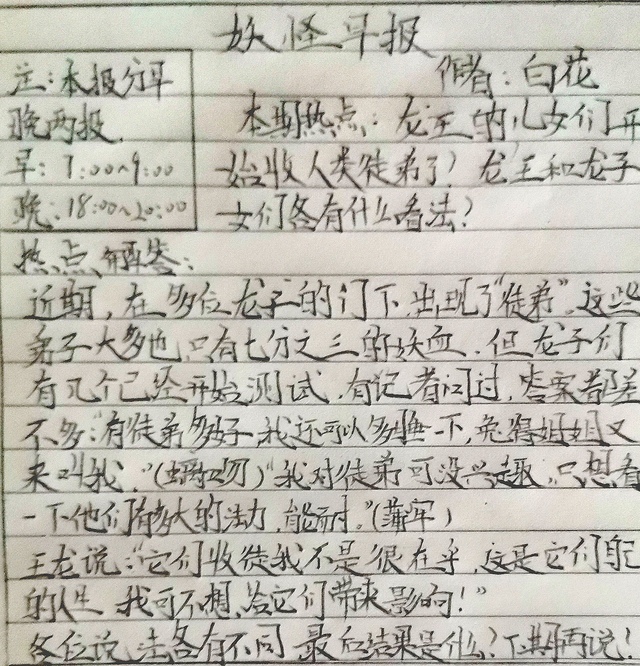 妖怪早报
注:本报分早
晚两报.
早:7:00~9:00
晚:18:00~20:00
作者:白花
本期热点:龙王的儿女们开
始收人类徒弟了?龙王和龙子
女们各有什么看法?
热点解答:
近期,在多位龙子的门下,出现了“徒弟”.这些
弟子大多也只有七分之三的妖血.但龙子们
有几个已经开始测试,有记者问过,答案都差
不多:“有徒弟多好,我还可以多睡一下,免得姐姐又
来叫我.”(螭吻)“我对徒弟可没兴趣,只想看
一下他们有多大的法力,能耐。”(蒲牢)
王龙说:“它们收徒我不是很在乎,这是它们自己
的人生 我可不想给它们带来影响!”
各位说法各有不同 最后结果是什么?下期再说!